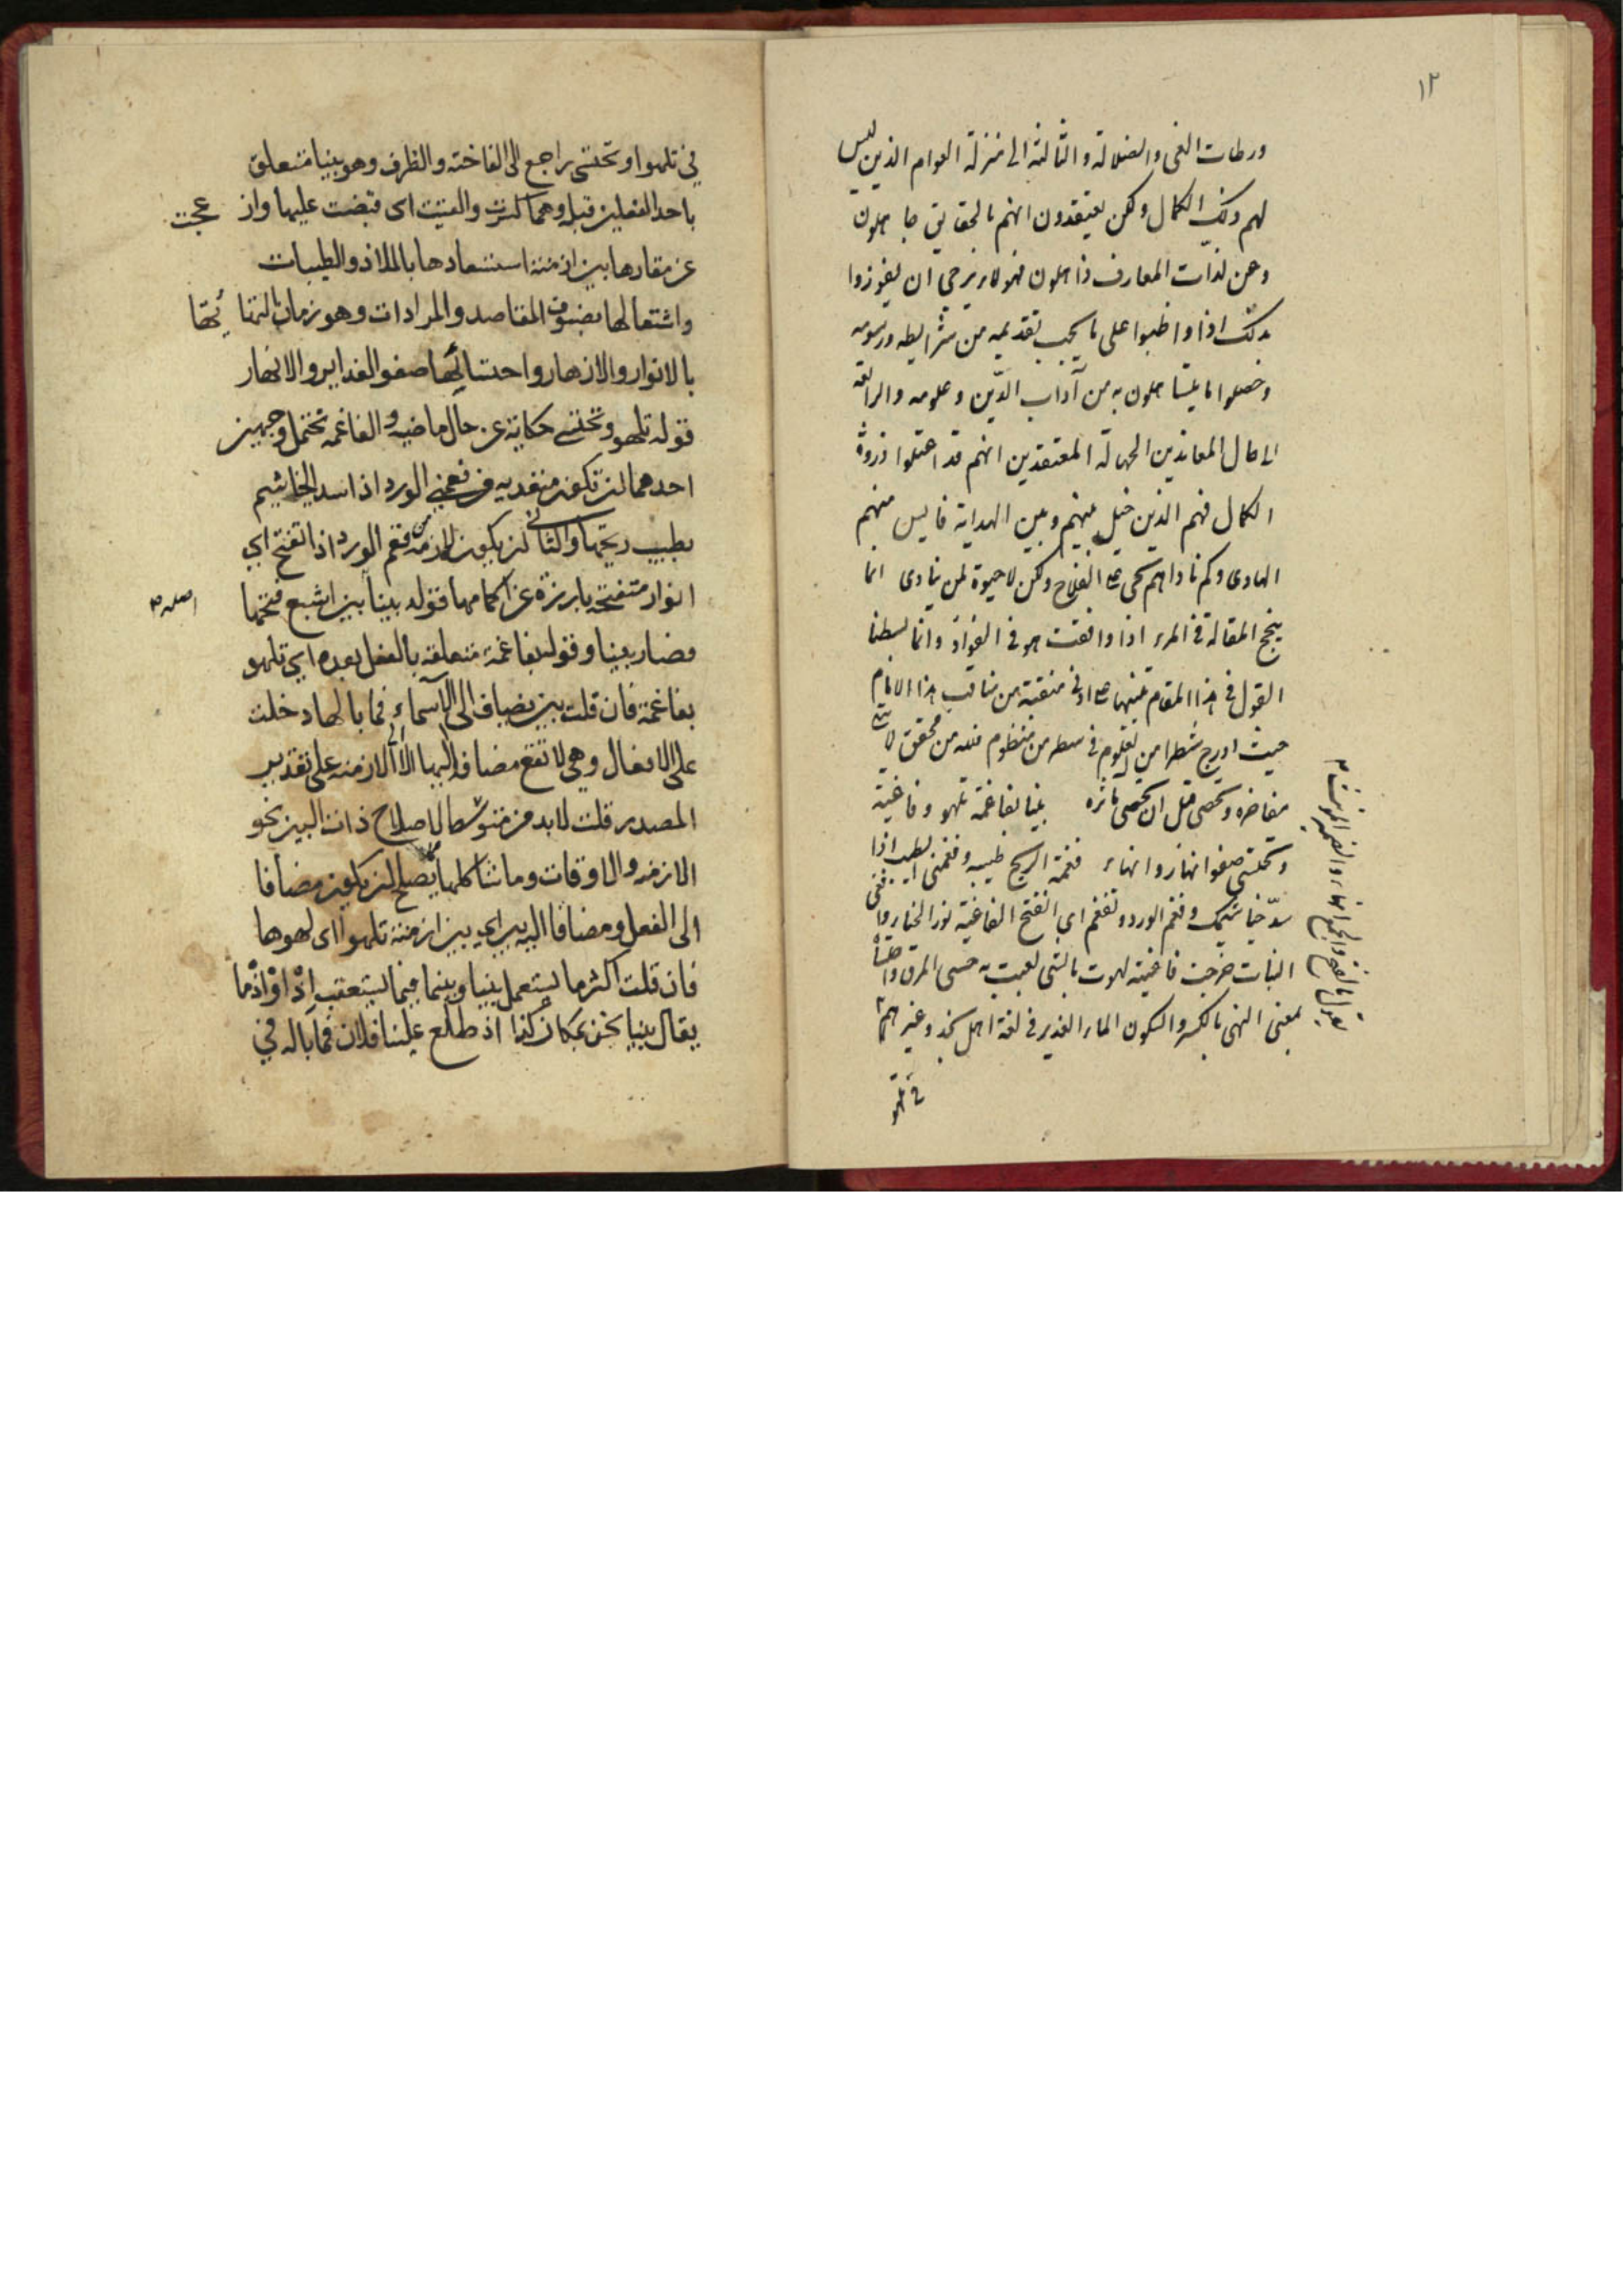 ١٢
ورطات الغى والضلالة والثالثة الى منزلة العوام الذين ليس
لهم ذلك الكمال ولكن يعتقدون انهم بالحقايق جاهلون
وعن لذات المعارف ذاهلون فهولاء يرجى ان يفوزوا
بذلك اذا واظبوا على ما يجب تقديمه من شرايطه ورسومه
وحصلوا ما يتساهلون به من آداب الدّين وعلومه والرابعة
الى حال المعاندين الجهالة المعتقدين انهم قد اعتلوا ذروة
الكمال فهم الذين حيل بينهم وبين الهداية فاليس منهم
الهادى وكم ناداهم بحى على الفلاح ولكن لا حيوة لمن ينادى انما
ينجح المقالة فى المرء اذا وافقت هوى فى الفواد وانما بسطنا
القول فى هذا المقام تنبيها على ادنى منقبة من مناقب هذا الامام
حيث ادرج شطرا من العلوم فى سطر من منظوم فلله من محقق لا
مفاخره ويحصى قبل ان يحصى مآثره بينا بفاغمة تلهو وفاغية
وتحتسى صفو انهار وانهاء فغمة الريح طيبه وفغمنى الطيب اذا
سدّ خياشيمك وفغم الورد وتفغم اى انفتح الفاغية نور الحناء وفغى
النبات خرجت فاغيته لهوت بالشى لعبت به حسى المرق واحتسا
بمعنى النهى بالكسر والسكون الماء الغدير فى لغة اهل نجد وغيرهم
فى تلهو
في تلهوا وتحتسى راجع الى الفاختة والظرف وهو بينا متعلق
باحد الفعلين قبله وهما كثرت والفيت اى قبضت عليها واز عجت
عن مقارها بين ازمنة استسعادها بالملاذ والطيبات
واشتعالها بضنوف المقاصد والمرادات وهو زمان التما ئها
بالانوار والازهار واحتسائها صفو الغدايرو الانهار
قوله تلهو وتحتسى حكاية عن حال ماضيه والفاغمة تحتمل وجهين
احدهما ان تكون متعديه من فغمني الورد اذا سد الخياشيم
بطيب ريحها والثانى ان يكون لازمة من فغم الورد اذا تفتح اي
انوار متفتحة بارزة عن اكمامها قوله بينا بين اشبع فتحها
فصار بينا وقوله بفاغمة متعلقة بالفعل بعده اي تلهو
بفاغمة فان قلت بين يضاف الى الاسماء فما بالها دخلت
على الافعال وهي لا تقع مضافة اليها الا الازمنة على تقدير
المصدر قلت لابد من متوسط لاصلاح ذات البين نحو
الازمنة والاوقات وما شاكلهما يصلح ان يكون مضافا
الى الفعل ومضافا اليه بين اي بين ازمنة تلهوا اى لهوها
فان قلت اكثر ما يستعمل بينا وبينما فيما يستعقب اذا واذ ما
يقال بينا نحن بمكان كذا اذ طلع علينا فلان فما باله في